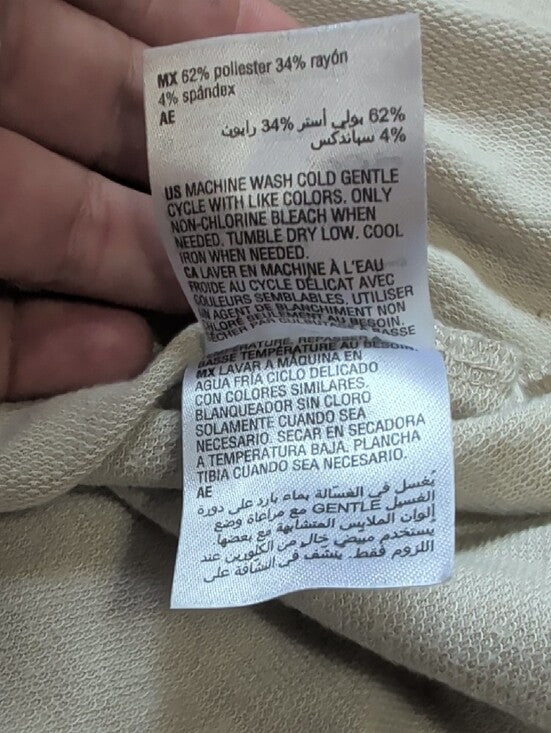 MX 62% poliester 34% rayón
4% spándex
AE
62% بولي أستر 34% رايون
4% سباندكس
US MACHINE WASH COLD GENTLE
CYCLE WITH LIKE COLORS. ONLY
NON-CHLORINE BLEACH WHEN
NEEDED. TUMBLE DRY LOW. COOL
IRON WHEN NEEDED.
CA LAVER EN MACHINE À L'EAU
FROIDE AU CYCLE DÉLICAT AVEC
COULEURS SEMBLABLES. UTILISER
UN AGENT DE BLANCHIMENT NON
CHLORÉ SEULEMENT AU BESOIN.
SÉCHER PAR BASSE
TEMPÉRATURE. REPASSER À
BASSE TEMPÉRATURE AU BESOIN.
MX LAVAR A MÁQUINA EN
AGUA FRÍA CICLO DELICADO
CON COLORES SIMILARES.
BLANQUEADOR SIN CLORO
SOLAMENTE CUANDO SEA
NECESARIO. SECAR EN SECADORA
A TEMPERATURA BAJA. PLANCHA
TIBIA CUANDO SEA NECESARIO.
AE
يُغسل في الغسالة بماء بارد على دورة
الغسيل GENTLE مع مراعاة وضع
ألوان الملابس المتشابهة مع بعضها
يستخدم مبيض خال من الكلورين عند
اللزوم فقط. ينشف في النشافة على